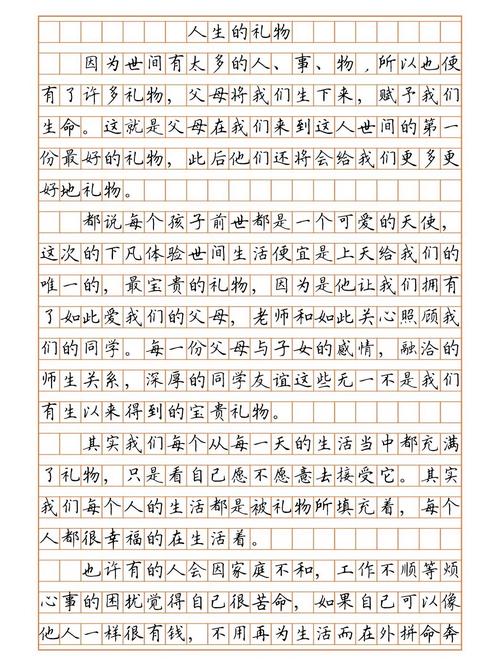 人生的礼物
因为世间有太多的人、事、物，所以也便
有了许多礼物，父母将我们生下来，赋予我们
生命。这就是父母在我们来到这人世间的第一
份最好的礼物，此后他们还将会给我们更多更
好地礼物。
都说每个孩子前世都是一个可爱的天使，
这次的下凡体验世间生活便宜是上天给我们的
唯一的，最宝贵的礼物，因为是他让我们拥有
了如此爱我们的父母，老师和如此关心照顾我
们的同学。每一份父母与子女的感情，融洽的
师生关系，深厚的同学友谊这些无一不是我们
有生以来得到的宝贵礼物。
其实我们每个从每一天的生活当中都充满
了礼物，只是看自己愿不愿意去接受它。其实
我们每个人的生活都是被礼物所填充着，每个
人都很幸福的在生活着。
也许有的人会因家庭不和，工作不顺等烦
心事的困扰觉得自己很苦命，如果自己可以像
他人一样很有钱，不用再为生活而在外拼命奔